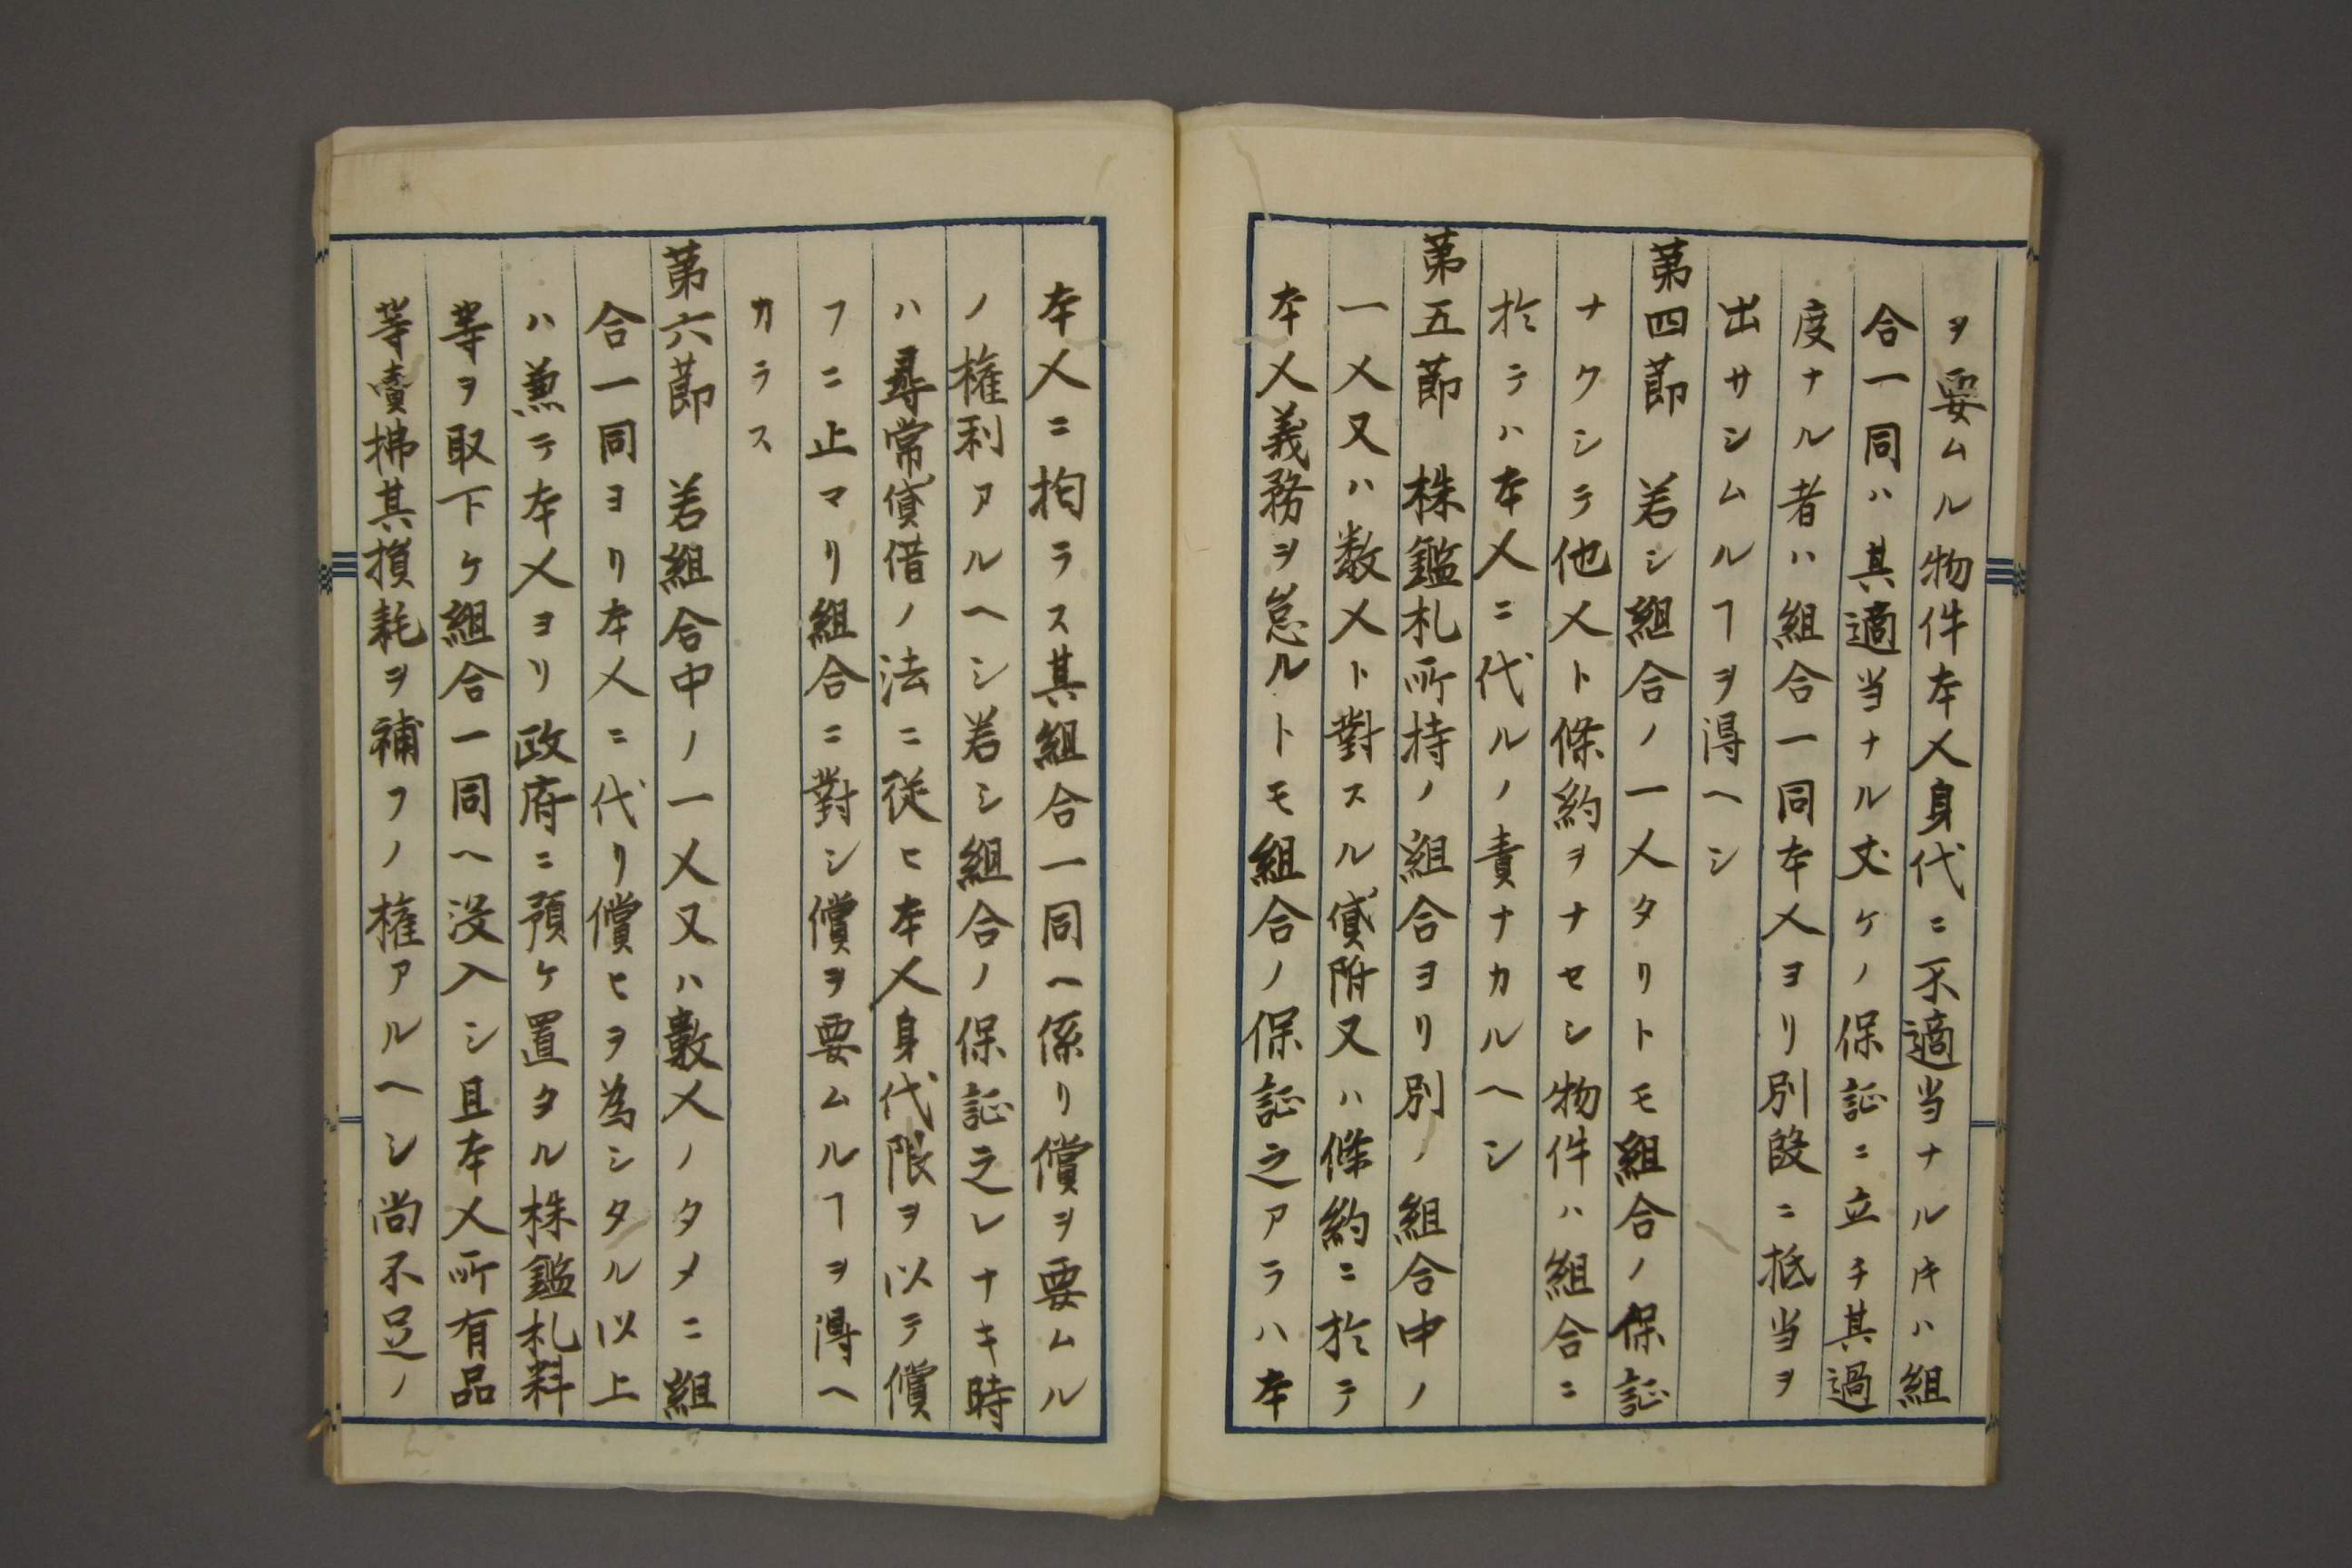 ヲ要ムル物件本人身代ニ不適当ナルキハ組
合一同ハ其適当ナル丈ケノ保証ニ立チ其過
度ナル者ハ組合一同本人ヨリ別段ニ抵当ヲ
出サシムルヿヲ得ヘシ
第四節 若シ組合ノ一人タリトモ組合ノ保証
ナクシテ他人ト條約ヲナセシ物件ハ組合ニ
於テハ本人ニ代ルノ責ナカルヘシ
第五節 株鑑札所持ノ組合ヨリ別ノ組合中ノ
一人又ハ数人ト對スル貸附又ハ條約ニ於テ
本人義務ヲ怠ルトモ組合ノ保証之アラハ本
本人ニ拘ラス其組合一同ヘ係リ償ヲ要ムル
ノ権利アルヘシ若シ組合ノ保証之レナキ時
ハ尋常貸借ノ法ニ従ヒ本人身代限ヲ以テ償
フニ止マリ組合ニ對シ償ヲ要ムルヿヲ得ヘ
カラス
第六節 若組合中ノ一人又ハ數人ノタメニ組
合一同ヨリ本人ニ代リ償ヒヲ為シタル以上
ハ兼テ本人ヨリ政府ニ預ケ置タル株鑑札料
等ヲ取下ケ組合一同ヘ没入シ且本人所有品
等賣拂其損耗ヲ補フノ権アルヘシ尚不足ノ